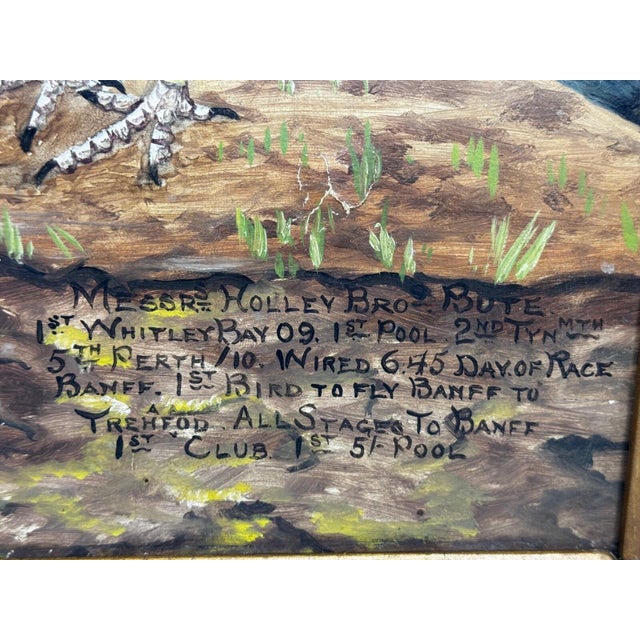 MESSRS HOLLEY BROS. BUTE.
1ST WHITLEY BAY 09. 1ST POOL. 2ND TYNMTH
5TH PERTH /10. WIRED 6.45 DAY OF RACE
BANFF. 1ST BIRD TO FLY BANFF TO
TREHAFOD. ALL STAGES TO BANFF
1ST CLUB. 1ST 5/- POOL